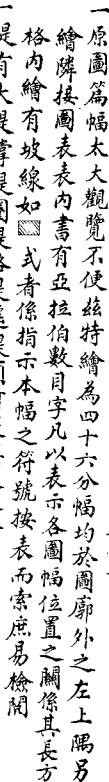 一原圖篇幅太大觀覽不便茲特繪為四十六分幅均於圖廓外之左上隅另
繪隣接圖表表內書有亞拉伯數目字凡以表示各圖幅位置之關係其長方
格內繪有坡線如▧式者係指示本幅之符號按表而索庶易檢閱